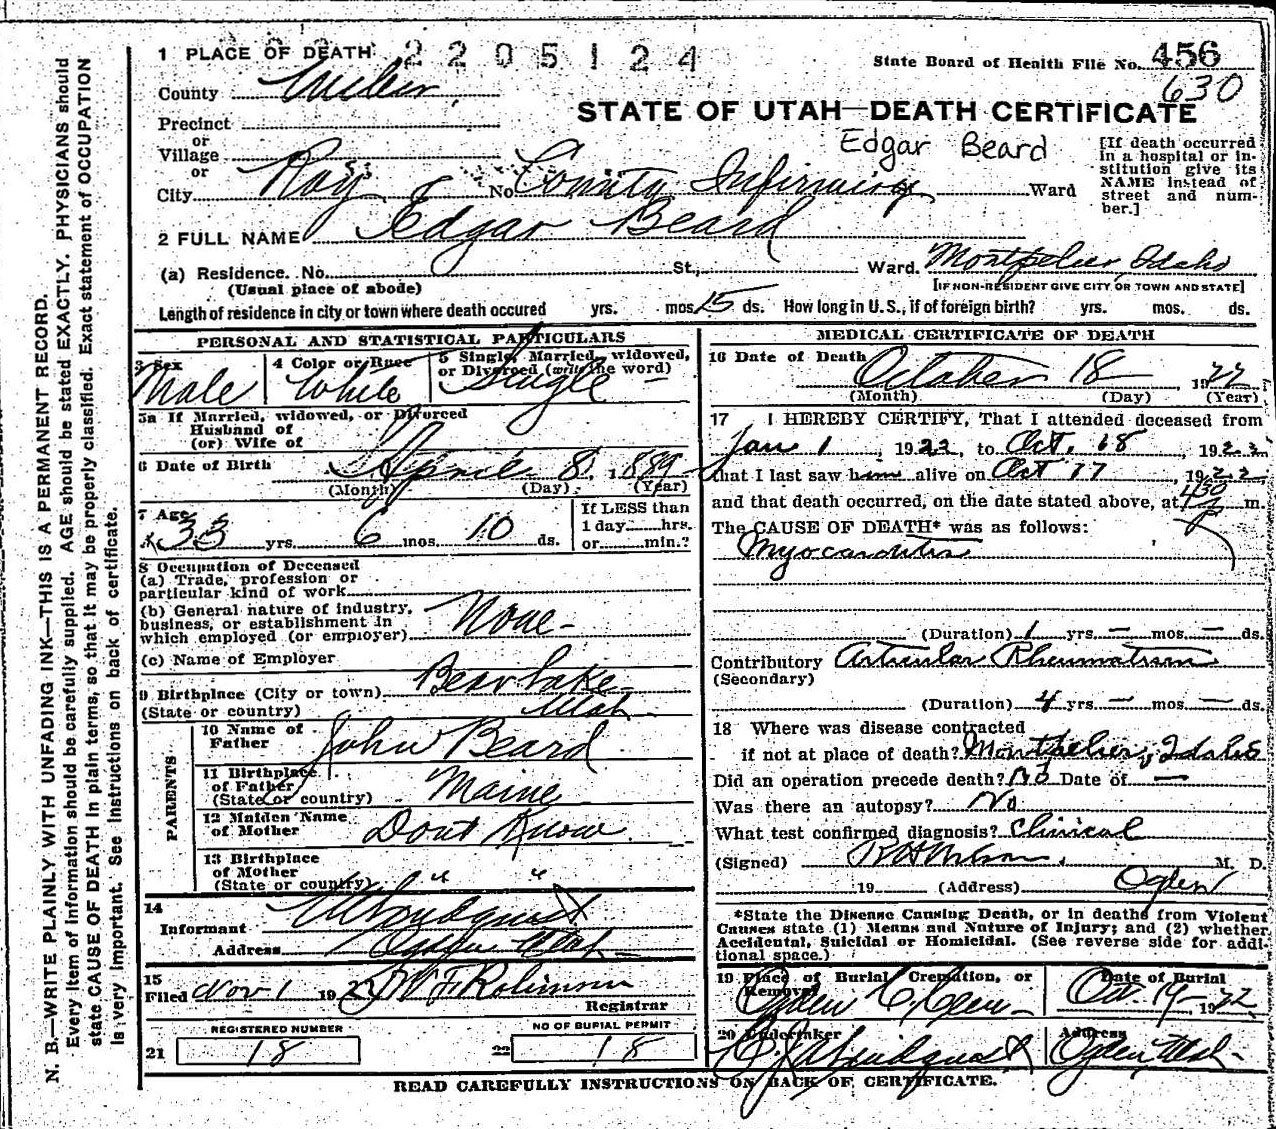 1 PLACE OF DEATH 2205124
State Board of Health File No. 456
630
County Weber
STATE OF UTAH—DEATH CERTIFICATE
Precinct
or
Village
or
City Roy No County Infirmary Ward
Edgar Beard
[If death occurred
in a hospital or in-
stitution give its
NAME instead of
street and num-
ber.]
2 FULL NAME Edgar Beard
(a) Residence. No. St., Ward. Montpelier, Idaho
(Usual place of abode)
[IF NON-RESIDENT GIVE CITY OR TOWN AND STATE]
Length of residence in city or town where death occured yrs. mos 15 ds. How long in U.S., if of foreign birth? yrs. mos. ds.
PERSONAL AND STATISTICAL PARTICULARS
3 Sex
Male
4 Color or Race
White
5 Single, Married, widowed,
or Divorced (write the word)
Single
5a If Married, widowed, or Divorced
Husband of
(or) Wife of
6 Date of Birth April 8, 1889
(Month) (Day) (Year)
7 Age
33 yrs. 6 mos. 10 ds.
If LESS than
1 day......hrs.
or......min.?
8 Occupation of Deceased
(a) Trade, profession or
particular kind of work
(b) General nature of industry,
business, or establishment in
which employed (or employer) None-
(c) Name of Employer
9 Birthplace (City or town) Bear Lake
(State or country) Utah
PARENTS
10 Name of
Father John Beard
11 Birthplace
of Father
(State or country) Maine
12 Maiden Name
of Mother Dont Know
13 Birthplace
of Mother
(State or country) " "
14
Informant
Address Ogden Utah
15
Filed Nov 1 1922 Robinson
Registrar
REGISTERED NUMBER
21 18
NO OF BURIAL PERMIT
22 18
MEDICAL CERTIFICATE OF DEATH
16 Date of Death
October 18, 1922
(Month) (Day) (Year)
17 I HEREBY CERTIFY, That I attended deceased from
Jan 1 1922, to Oct. 18, 1922
that I last saw him alive on Oct 17, 1922
and that death occurred, on the date stated above, at 430 P m.
The CAUSE OF DEATH* was as follows:
Myocarditis
(Duration) 1 yrs. — mos. — ds.
Contributory Articular Rheumatism
(Secondary)
(Duration) 4 yrs. — mos. — ds.
18 Where was disease contracted
if not at place of death? Montpelier, Idaho
Did an operation precede death? No Date of —
Was there an autopsy? No
What test confirmed diagnosis? Clinical
(Signed) M. D.
19 (Address) Ogden
*State the Disease Causing Death, or in deaths from Violent
Causes state (1) Means and Nature of Injury; and (2) whether
Accidental, Suicidal or Homicidal. (See reverse side for addi-
tional space.)
19 Place of Burial Cremation, or
Removal
Ogden C. Cem.
Date of Burial
Oct. 19- 1922
20 Undertaker
Address
Ogden Utah-
READ CAREFULLY INSTRUCTIONS ON BACK OF CERTIFICATE.
N. B.—WRITE PLAINLY WITH UNFADING INK—THIS IS A PERMANENT RECORD.
Every item of information should be carefully supplied. AGE should be stated EXACTLY. PHYSICIANS should
state CAUSE OF DEATH in plain terms, so that it may be properly classified. Exact statement of OCCUPATION
is very important. See instructions on back of certificate.